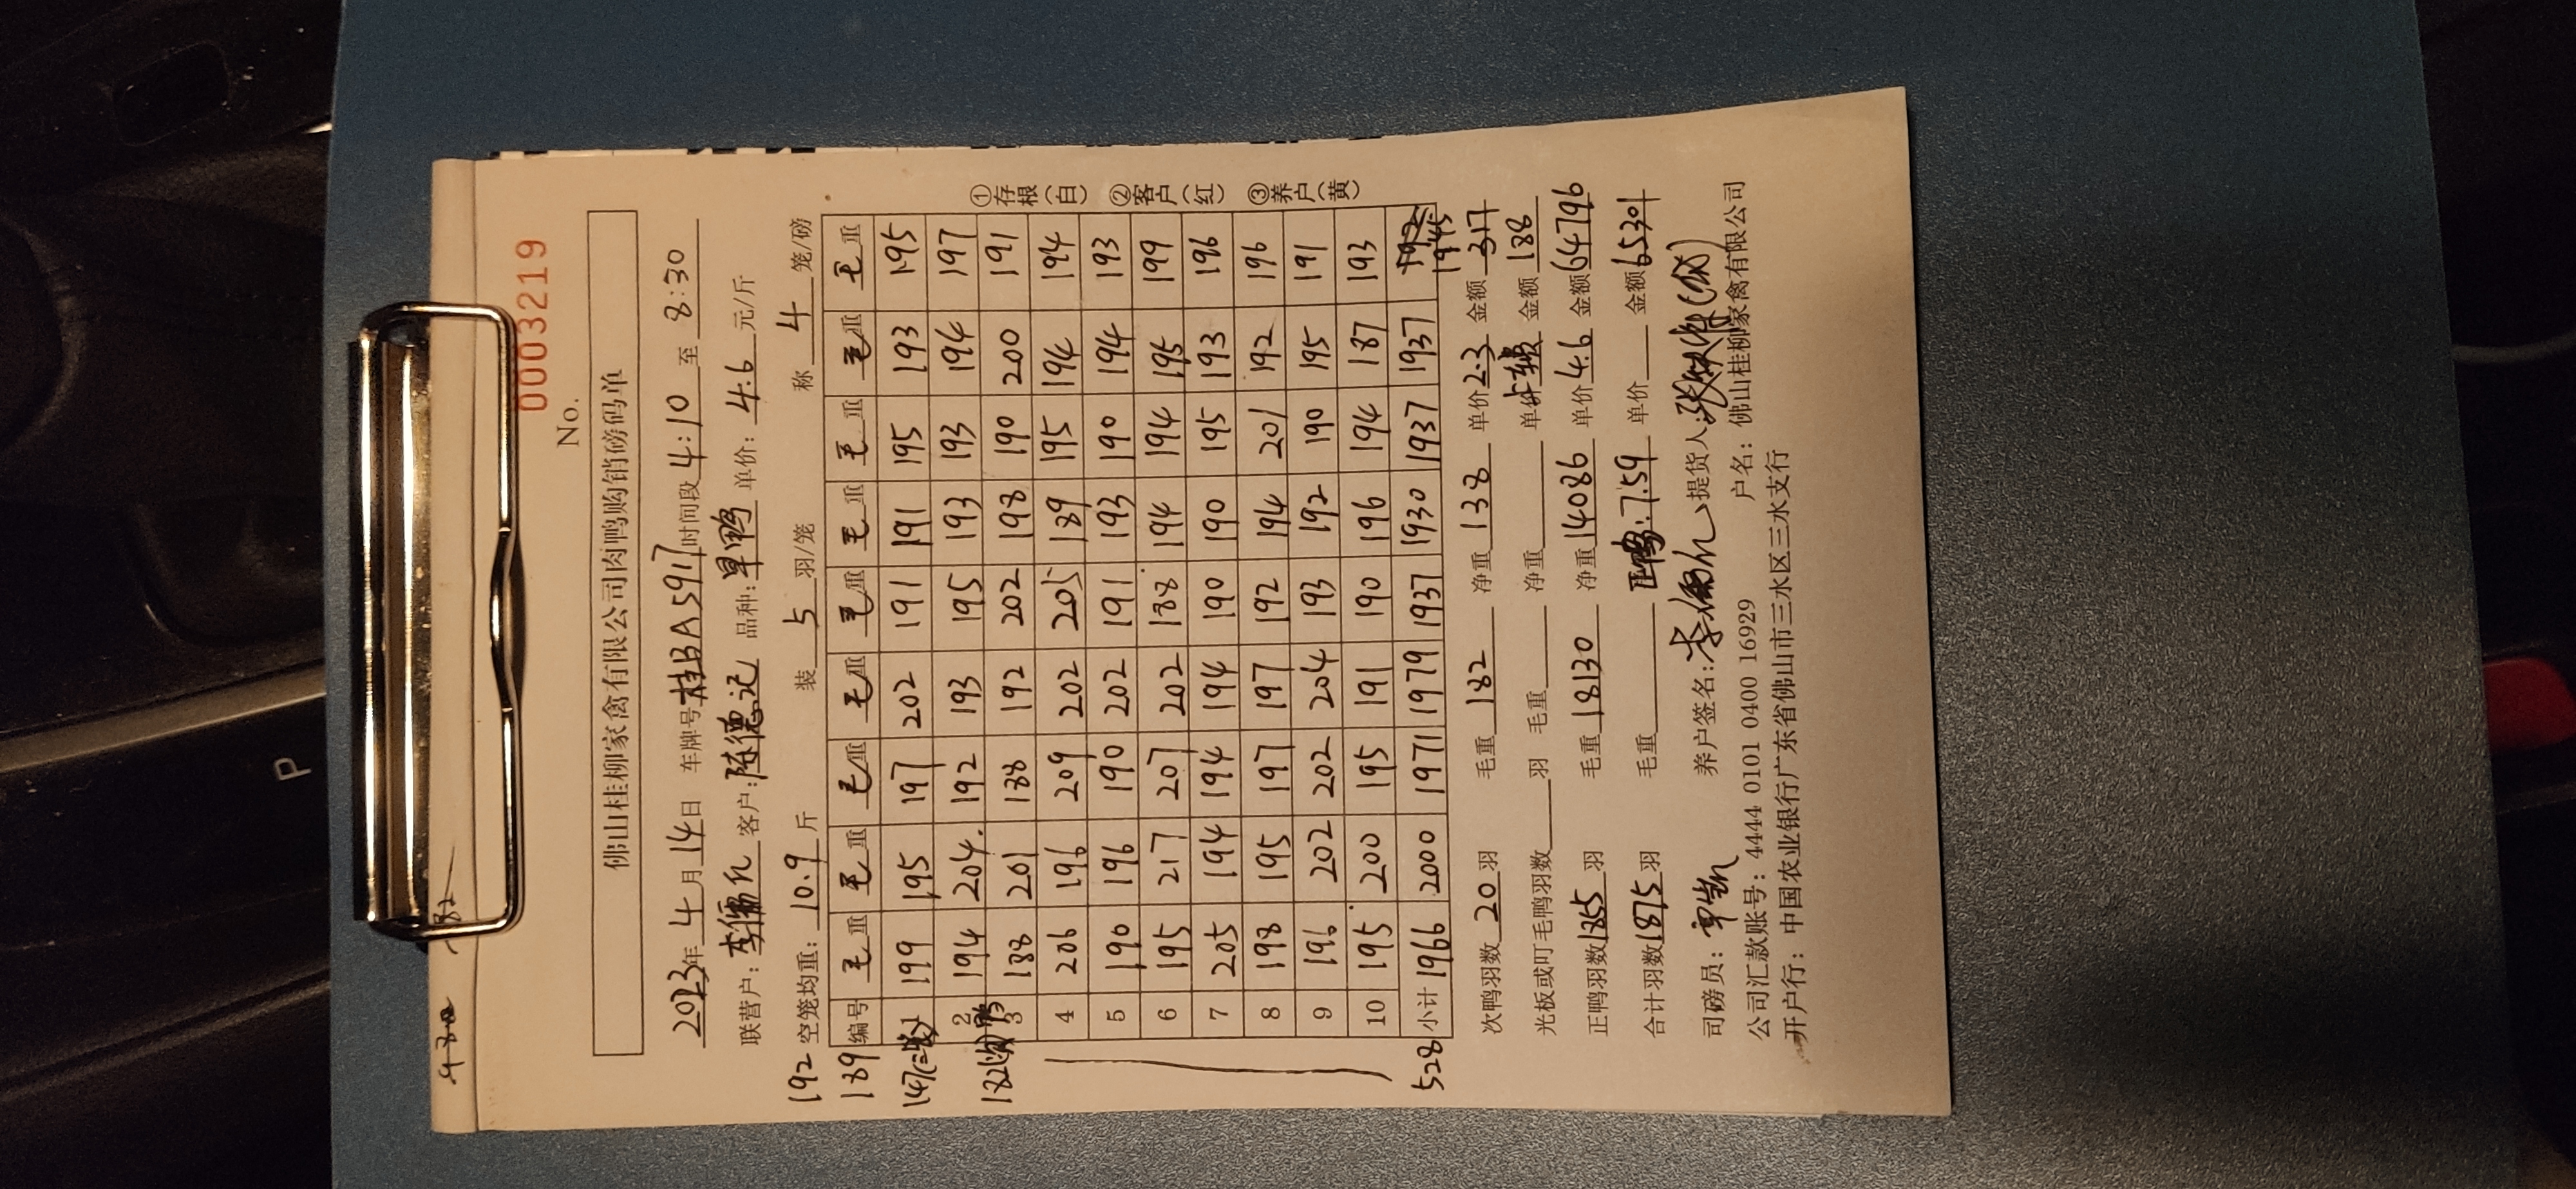 No. 0003219
佛山桂柳家禽有限公司肉鸭购销磅码单
2023年4月14日 车牌号桂BA5917时间段4:10至8:30
联营户: 客户:陈德记 品种:旱鸭 单价:4.6元/斤
192 空笼均重:10.9斤 装5羽/笼 称4笼/磅
189 编号 毛重 毛重 毛重 毛重 毛重 毛重 毛重 毛重 毛重
1 199 195 197 202 191 191 195 193 195
2 194 204 192 193 195 193 193 194 197
3 188 201 188 192 202 198 190 200 191
4 206 196 209 202 205 189 195 194 194
5 190 196 190 202 191 193 190 194 193
6 195 217 207 202 188 194 194 195 199
7 205 194 194 194 190 190 195 193 196
8 198 195 197 197 192 194 201 192 196
9 196 202 202 204 193 192 190 195 191
10 195 200 195 191 190 196 194 187 193
528 小计 1966 2000 1971 1979 1937 1930 1937 1937 1945
①存根(白) ②客户(红) ③养户(黄)
次鸭羽数20羽 毛重182 净重138 单价2.3 金额317
光板或叮毛鸭羽数 羽 毛重 净重 单价 金额188
正鸭羽数1855羽 毛重18130 净重14086 单价4.6 金额64796
合计羽数1875羽 毛重 正鸭:7.59 单价 金额65301
司磅员: 养户签名: 提货人:
公司汇款账号:4444 0101 0400 16929 户名:佛山桂柳家禽有限公司
开户行:中国农业银行广东省佛山市三水区三水支行
P